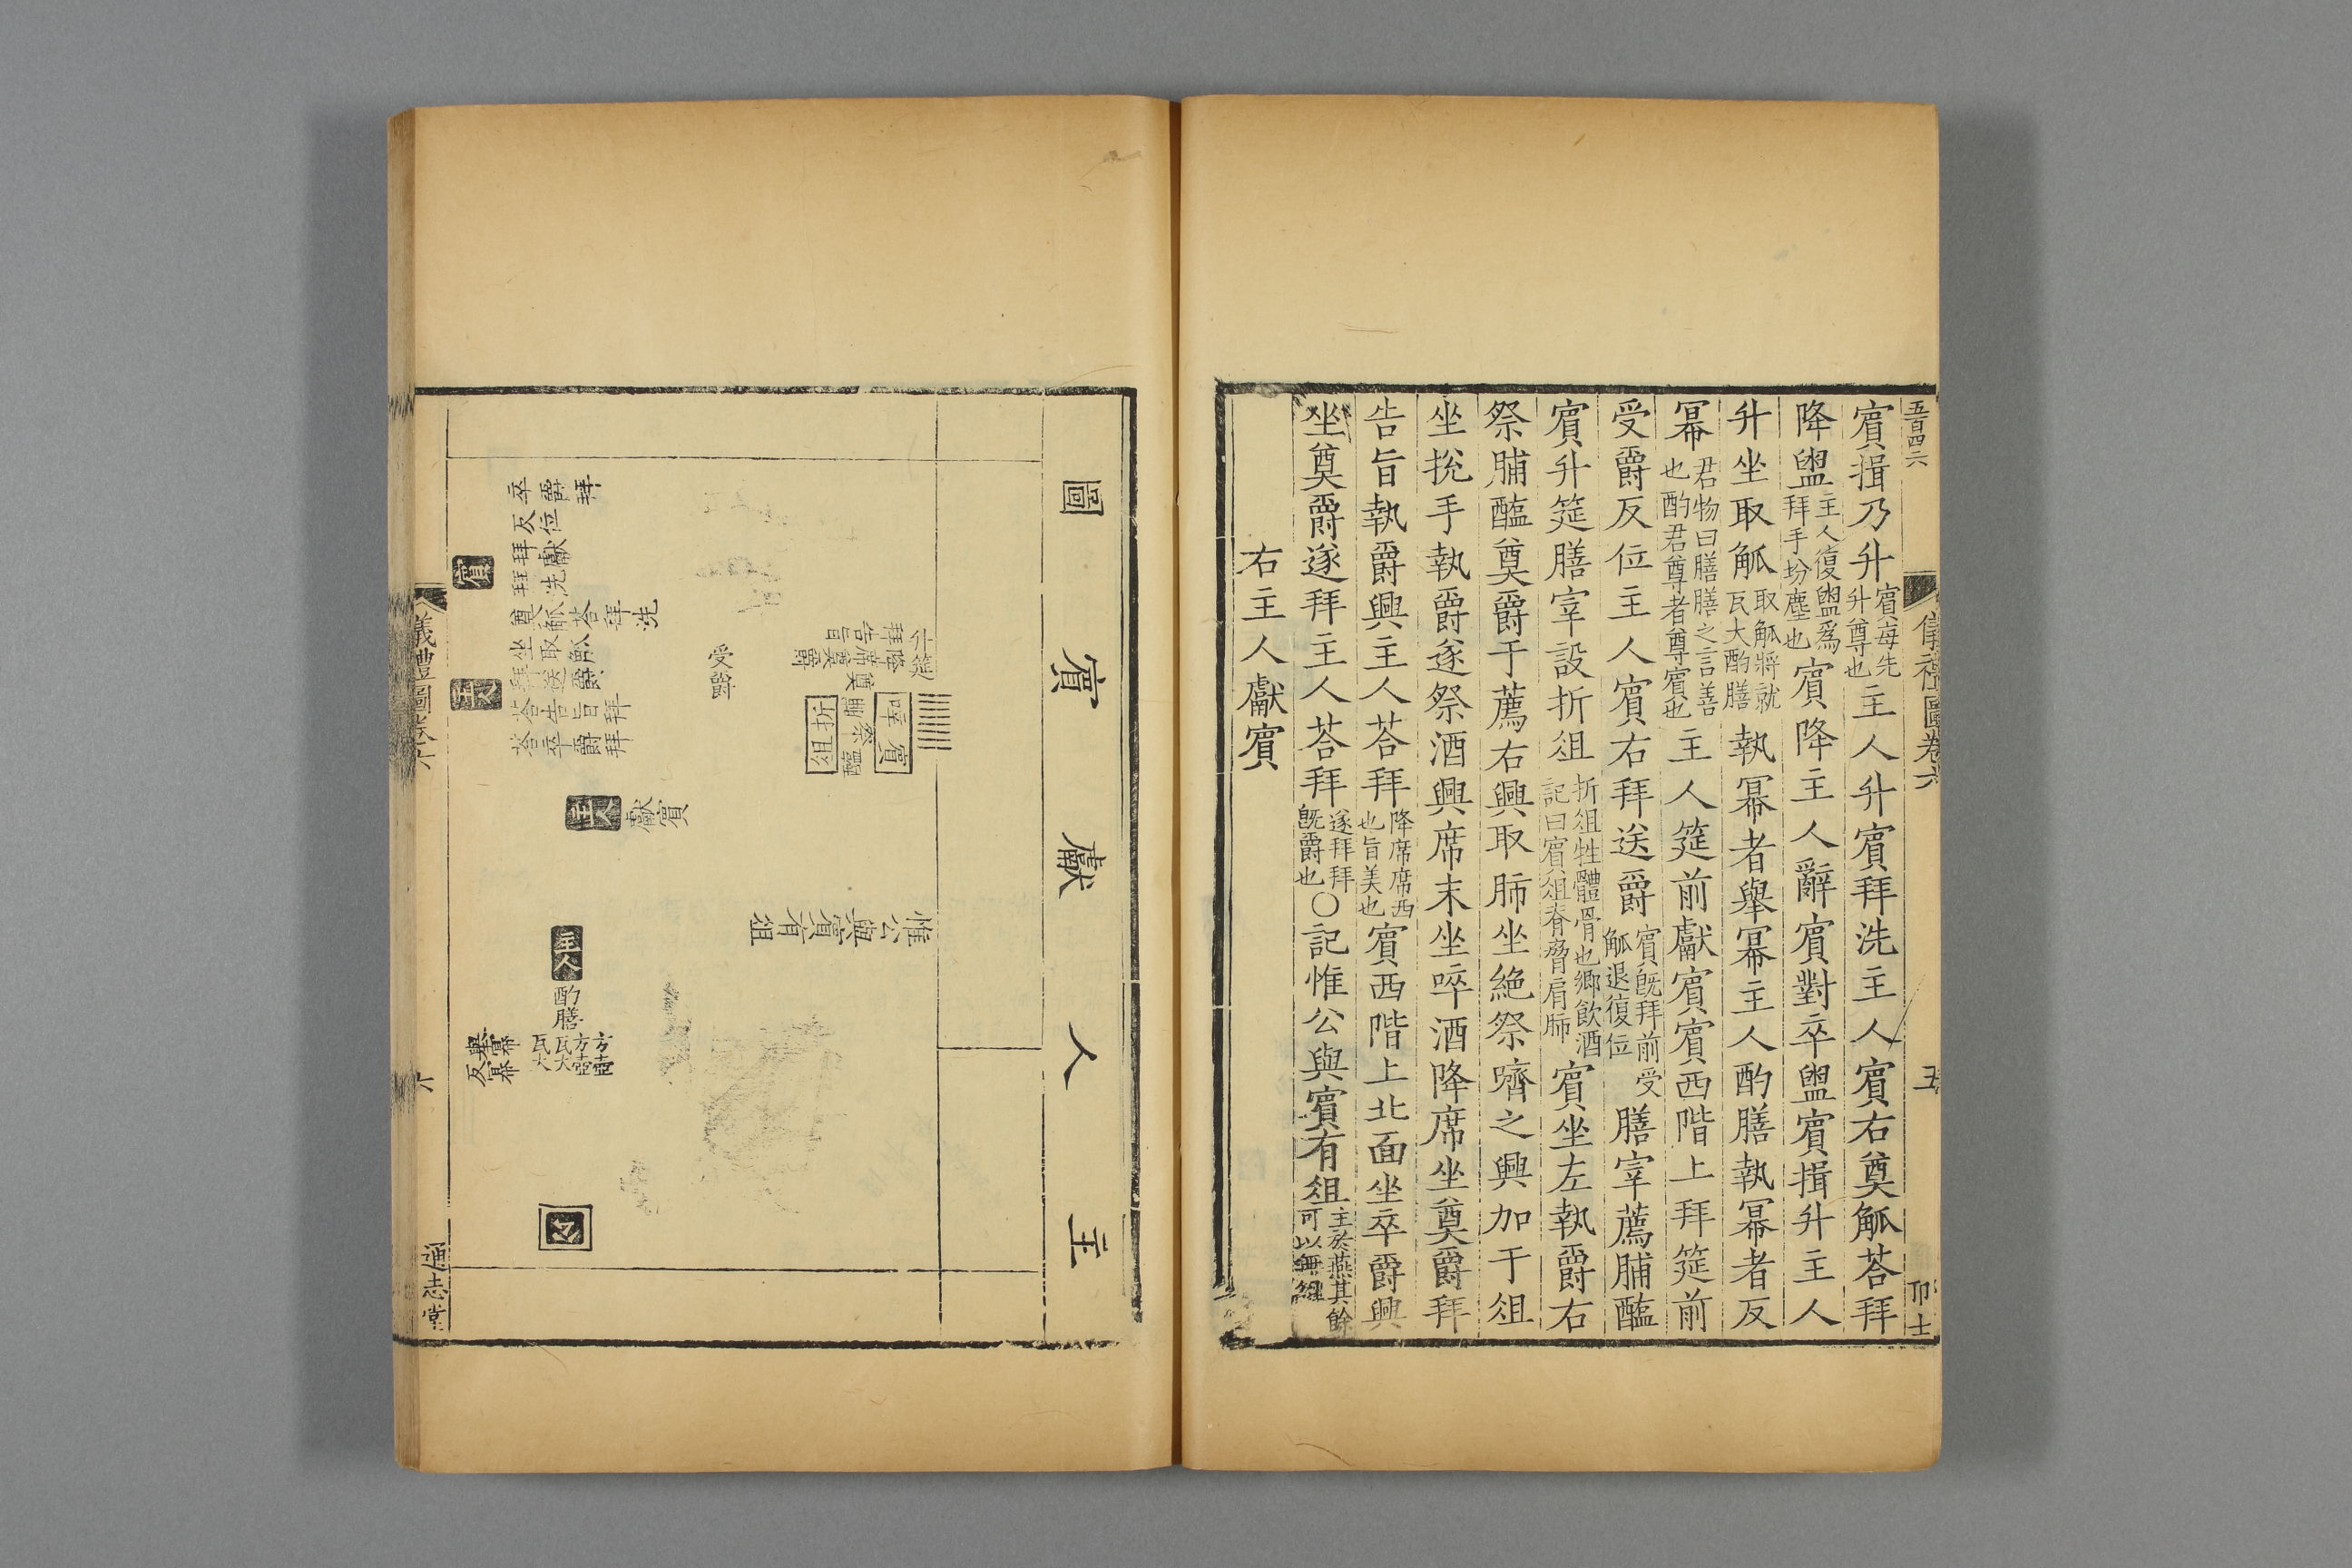 五百四六
儀禮圖卷六
五
賓揖乃升賓每先升尊也主人升賓拜洗主人賓右奠觚荅拜
降盥主人復盥爲拜手坋塵也賓降主人辭賓對卒盥賓揖升主人
升坐取觚取觚將就瓦大酌膳執冪者舉冪主人酌膳執冪者反
冪君物曰膳膳之言善也酌君尊者尊賓也主人筵前獻賓賓西階上拜筵前
受爵反位主人賓右拜送爵賓旣拜前受觚退復位膳宰薦脯醢
賓升筵膳宰設折俎折俎牲體骨也鄉飲酒記曰賓俎脊脅肩肺賓坐左執爵右
祭脯醢奠爵于薦右興取肺坐絶祭嚌之興加于俎
坐挩手執爵遂祭酒興席末坐啐酒降席坐奠爵拜
告旨執爵興主人荅拜降席席西也旨美也賓西階上北面坐卒爵興
坐奠爵遂拜主人荅拜遂拜拜旣爵也○記惟公與賓有俎主於燕其餘可以無俎
右主人獻賓
主人獻賓圖
惟公與賓有俎
折俎
受爵
獻賓
主人
賓
主人
主人
酌膳
方壺
方壺
瓦大
瓦大
舉冪
反冪
公
儀禮圖卷六
六
通志堂